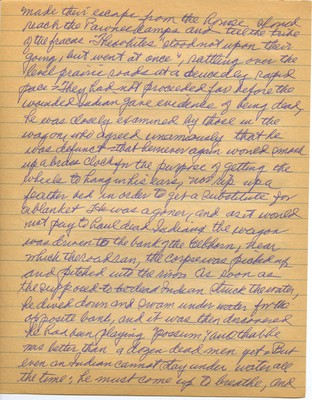 made their escape from the house and
reach the Pawnee camps and tell the tribe
of the fracas. The whites "stood not upon their
going, but went at once", rattling over the
level prairie roads at a deucedly rapid
pace. They had not proceeded far before the
wounded Indian gave evidence of being dead,
he was closely examined by those in the
wagon, who agreed unanimously that he
was defunct - that he never again would smash
up a brass clock for the purpose of getting the
wheels to hang in his ears, nor rip up a
feather bed in order to get a substitute for
a blanket. He was a goner, and as it would
not pay to haul dead Indians the wagon
was driven to the bank of the Elkhorn, near
which the road ran, the corpse was picked up
and pitched into the river. As soon as
the supposed to be dead Indian struck the water,
he dived down and swam under water for the
opposite bank, and it was then discovered
he had been playing 'possum, and that he
was better than a dozen dead men yet. But
even an Indian cannot stay under water all
the time; he must come up to breathe, and